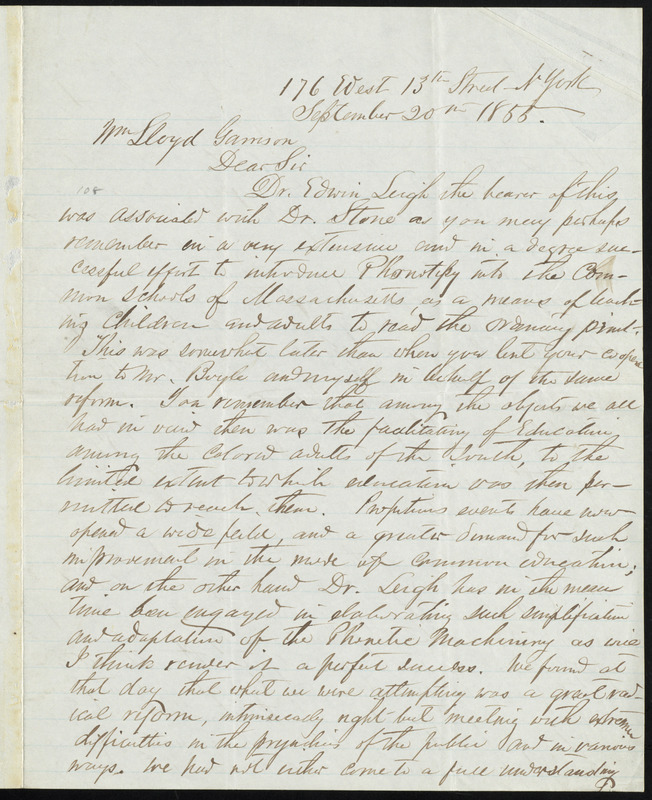 176 West 13th Street N York
September 20th 1865.
Wm Lloyd Garrison
Dear Sir
108
Dr. Edwin Leigh the bearer of this,
was associated with Dr. Stone as you may perhaps
remember in a very extensive and in a degree suc-
cessful effort to introduce Phonotypy into the Com-
mon Schools of Massachusetts as a means of teach-
ing Children and adults to read the ordinary print.
This was somewhat later than when you lent your coopera
tion to Mr. Boyle and myself in behalf of the same
reform. You remember that among the objects we all
had in view then was the facilitating of Education
among the Colored adults of the South, to the
limited extent to which education was then per-
mitted to reach them. Propitious events have now
opened a wide field, and a greater demand for such
improvement in the mode of common education;
and on the other hand Dr. Leigh has in the mean
time been engaged in elaborating such simplification
and adaptation of the Phonetic Machinery as will
I think render it a perfect success. We found at
that day that what we were attempting was a great rad-
ical reform, intrinsically right but meeting with extreme
difficulties in the prejudices of the public and in various
ways. We had not either come to a full understanding